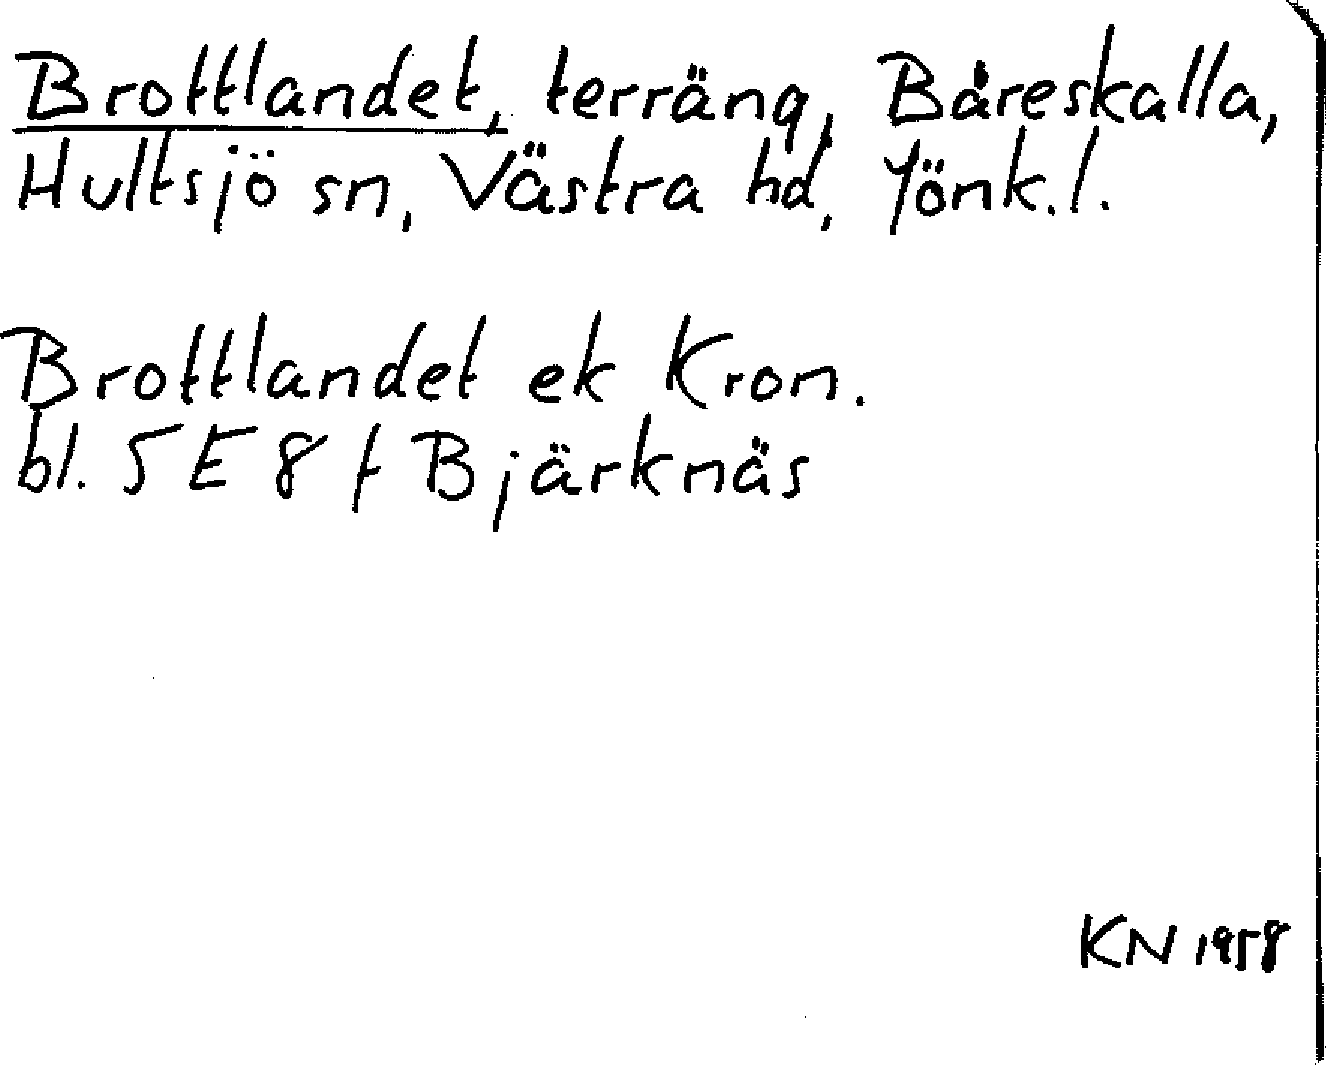 Brottlandet, terräng, Båreskalla,
Hultsjö sn, Västra hd, Jönk.l.
Brottlandet ek Kron.
bl. 5E8f Bjärknäs
KN 1958